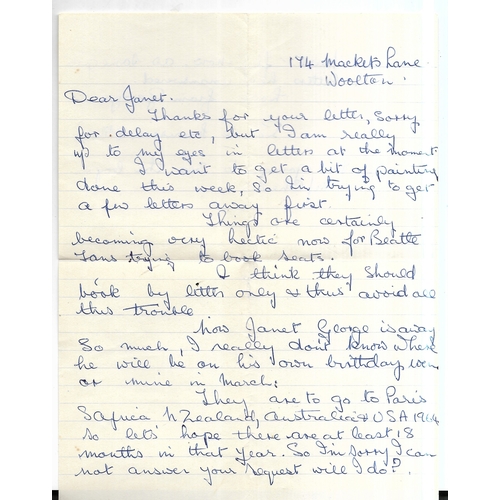 174 Mackets Lane
Woolton.
Dear Janet.
Thanks for your letter, Sorry
for delay etc, but I am really
up to my eyes in letters at the moment
I want to get a bit of painting
done this week, So I'm trying to get
a few letters away first.
Things are certainly
becoming very hectic now for Beatle
Fans trying to book seats.
I think they should
book by letter only & thus avoid all
this trouble
Now Janet George is away
So much, I really don't know where
he will be on his own birthday
or mine in March:
They are to go to Paris
S Africa N Zealand, Australia & USA 1964
so let's hope there are at least 18
months in that year. So I'm sorry I can
not answer your request will I do?.